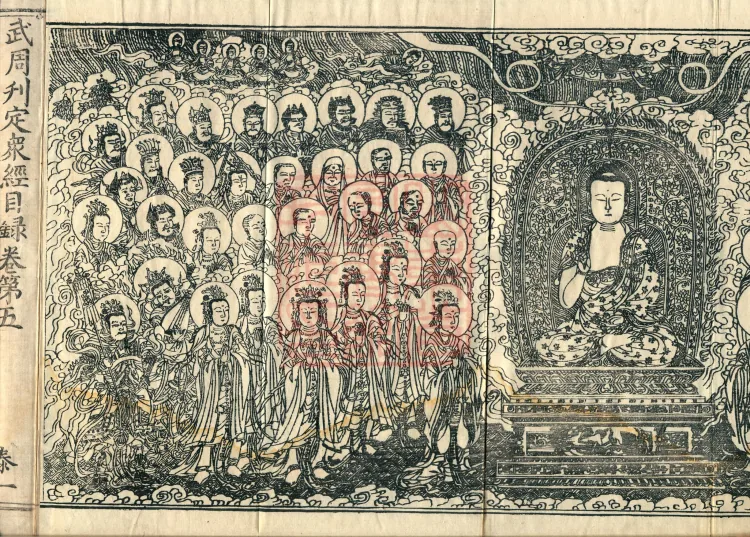 武周刊定衆經目録卷第五
泰一